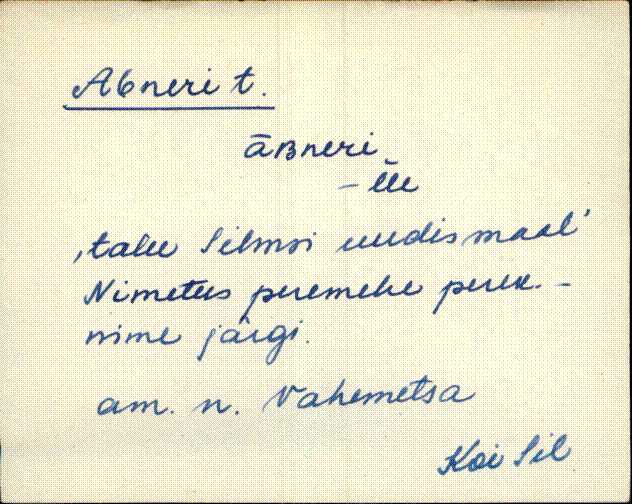 Abneri t.
āʙneri
– l̆l̆e
‚talu Silmsi uudismaal’
Nimetus peremehe perek. –
nime järgi.
am. n. Vahemetsa
Koi Sil